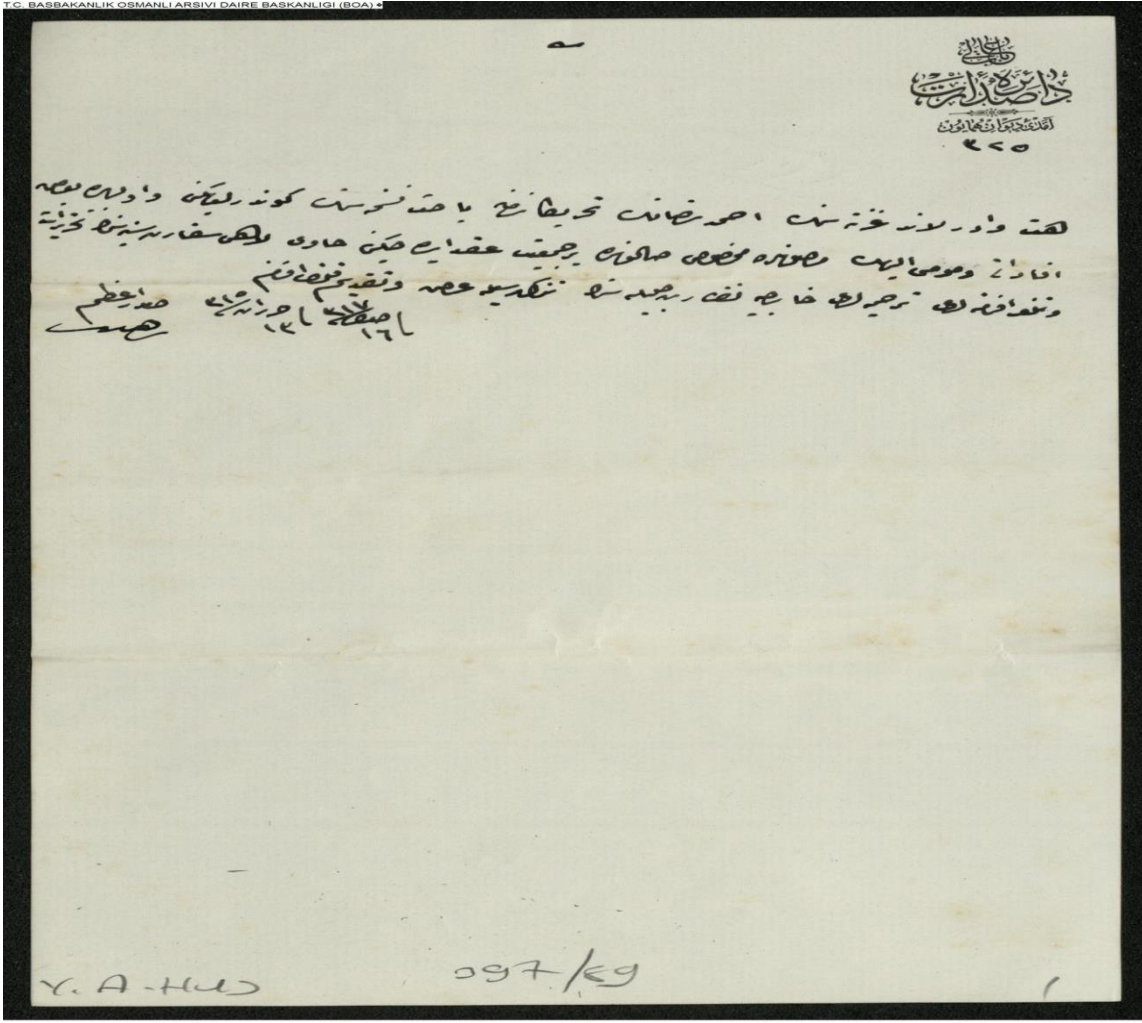 T.C. BASBAKANLIK OSMANLI ARSIVI DAIRE BASKANLIGI (BOA)
باب عالی
دائرهٔ صدارت
آمدئ دیوان همایون
٣٢٥
هت وادرلاند غزته سنك احمد رضانك تحریفاتنه باحث نسخه سنك كوندرلدیكنی و اولبابده بعض
افاداتی ومومی الیهك مخصوص صالونده بر جمعیت عقد ایده جكنی حاوی لاهی سفارت سنیه سنك تحریراتی
وتلغرافنامه لری ترجمه لری خارجیه نظارت جلیله سنك تذكره سیله عرض وتقدیم قلنمشدر افندم
١٦ صفر ٣١٧ ١٣ حزیران ٣١٥
صدر اعظم
رفعت
Y. A-HUS
397/49
1